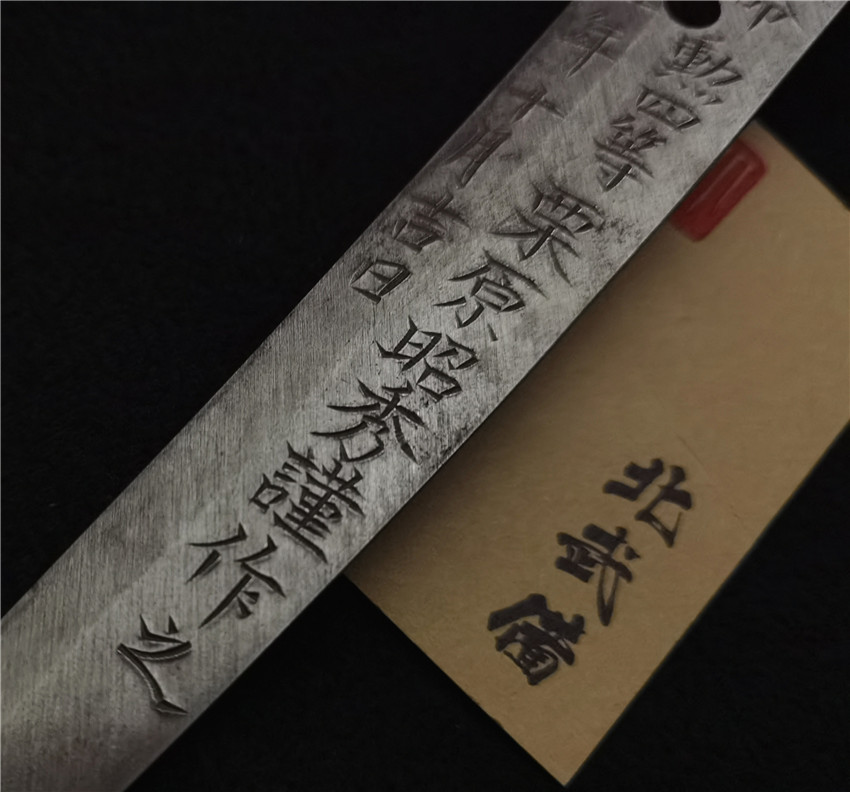 勲四等栗原昭秀謹作之
年十月吉日
北武備